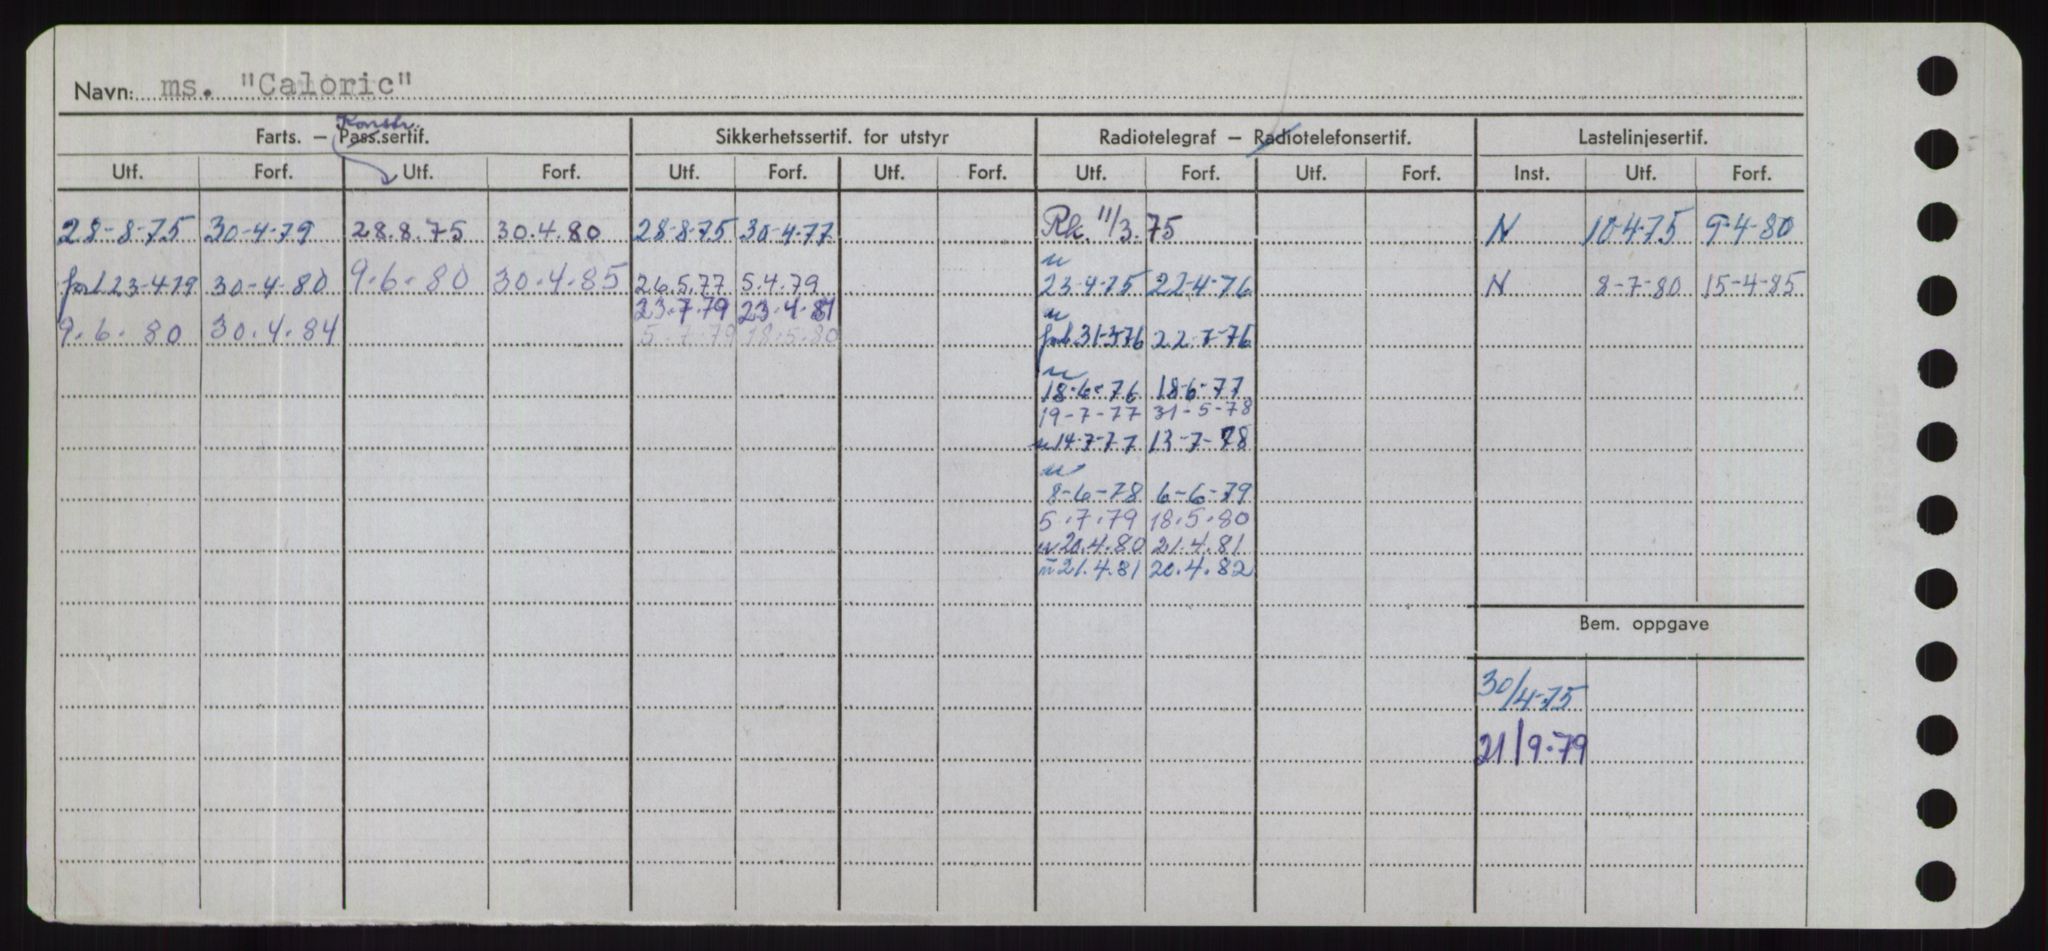 Navn: ms. "Caloric"
Konstr.
Farts. – Pass.sertif. Sikkerhetssertif. for utstyr Radiotelegraf – Radiotelefonsertif. Lastelinjesertif.
Utf. Forf. Utf. Forf. Utf. Forf. Utf. Forf. Utf. Forf. Utf. Forf. Inst. Utf. Forf.
28-8-75 30-4-79 28.8.75 30.4.80 28-8-75 30-4-77 Rk. 11/3.75 N 10-4-75 9-4-80
u
forl 23-4-79 30-4-80 9-6-80 30.4.85 26.5.77 5.4.79 23-4-75 22-4-76 N 8-7-80 15-4-85
23.7.79 23.4.81 u
9.6.80 30.4.84 5.7.79 18.5.80 forl 31-3-76 22-7-76
u
18-6-76 18-6-77
19-7-77 31-5-78
u 14-7-77 13-7-78
u
8-6-78 6-6-79
5.7.79 18.5.80
u 20.4.80 21.4.81
u 21.4.81 20.4.82
Bem. oppgave
30/4-75
21/9-79